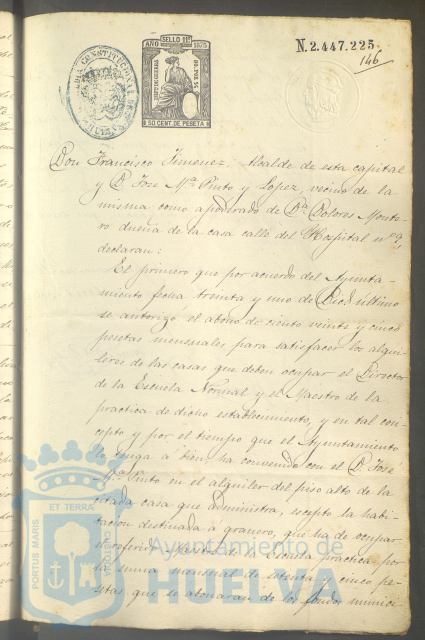 ALCALDIA CONSTITUCIONAL DE HUELVA
SELLO 11º
AÑO 1875
IMPTO DE GUERRA
50 CENT DE PESETA
N.2.447.225
146
Don Francisco Jimenez, Alcalde de esta capital
y D. Jose Mª Pinto y Lopez, vecino de la
misma como apoderado de Dª Dolores Monte-
ro dueña de la casa calle del Hospital nº 9
declaran:
El primero que por acuerdo del Ayunta-
miento fecha treinta y uno de Dice último
se autorizo el abono de ciento veinte y cinco
pesetas mensuales para satisfacer los alqui-
leres de las casas que deben ocupar el Director
de la Escuela Normal y el Maestro de la
practica de dicho establecimiento, y en tal con-
cepto y por el tiempo que el Ayuntamiento
lo tenga á bien, ha convenido con el D. José
Mª Pinto en el alquiler del piso alto de la
citada casa que administra, escepto la habi-
tacion destinada á granero, que ha de ocupar
el referido Maestro de la Escuela practica por
la suma mensual de setenta y cinco pe-
setas que se abonaran de los fondos munici-
PORTUS MARIS
ET TERRÆ
CUSTODIA
Ayuntamiento de
HUELVA